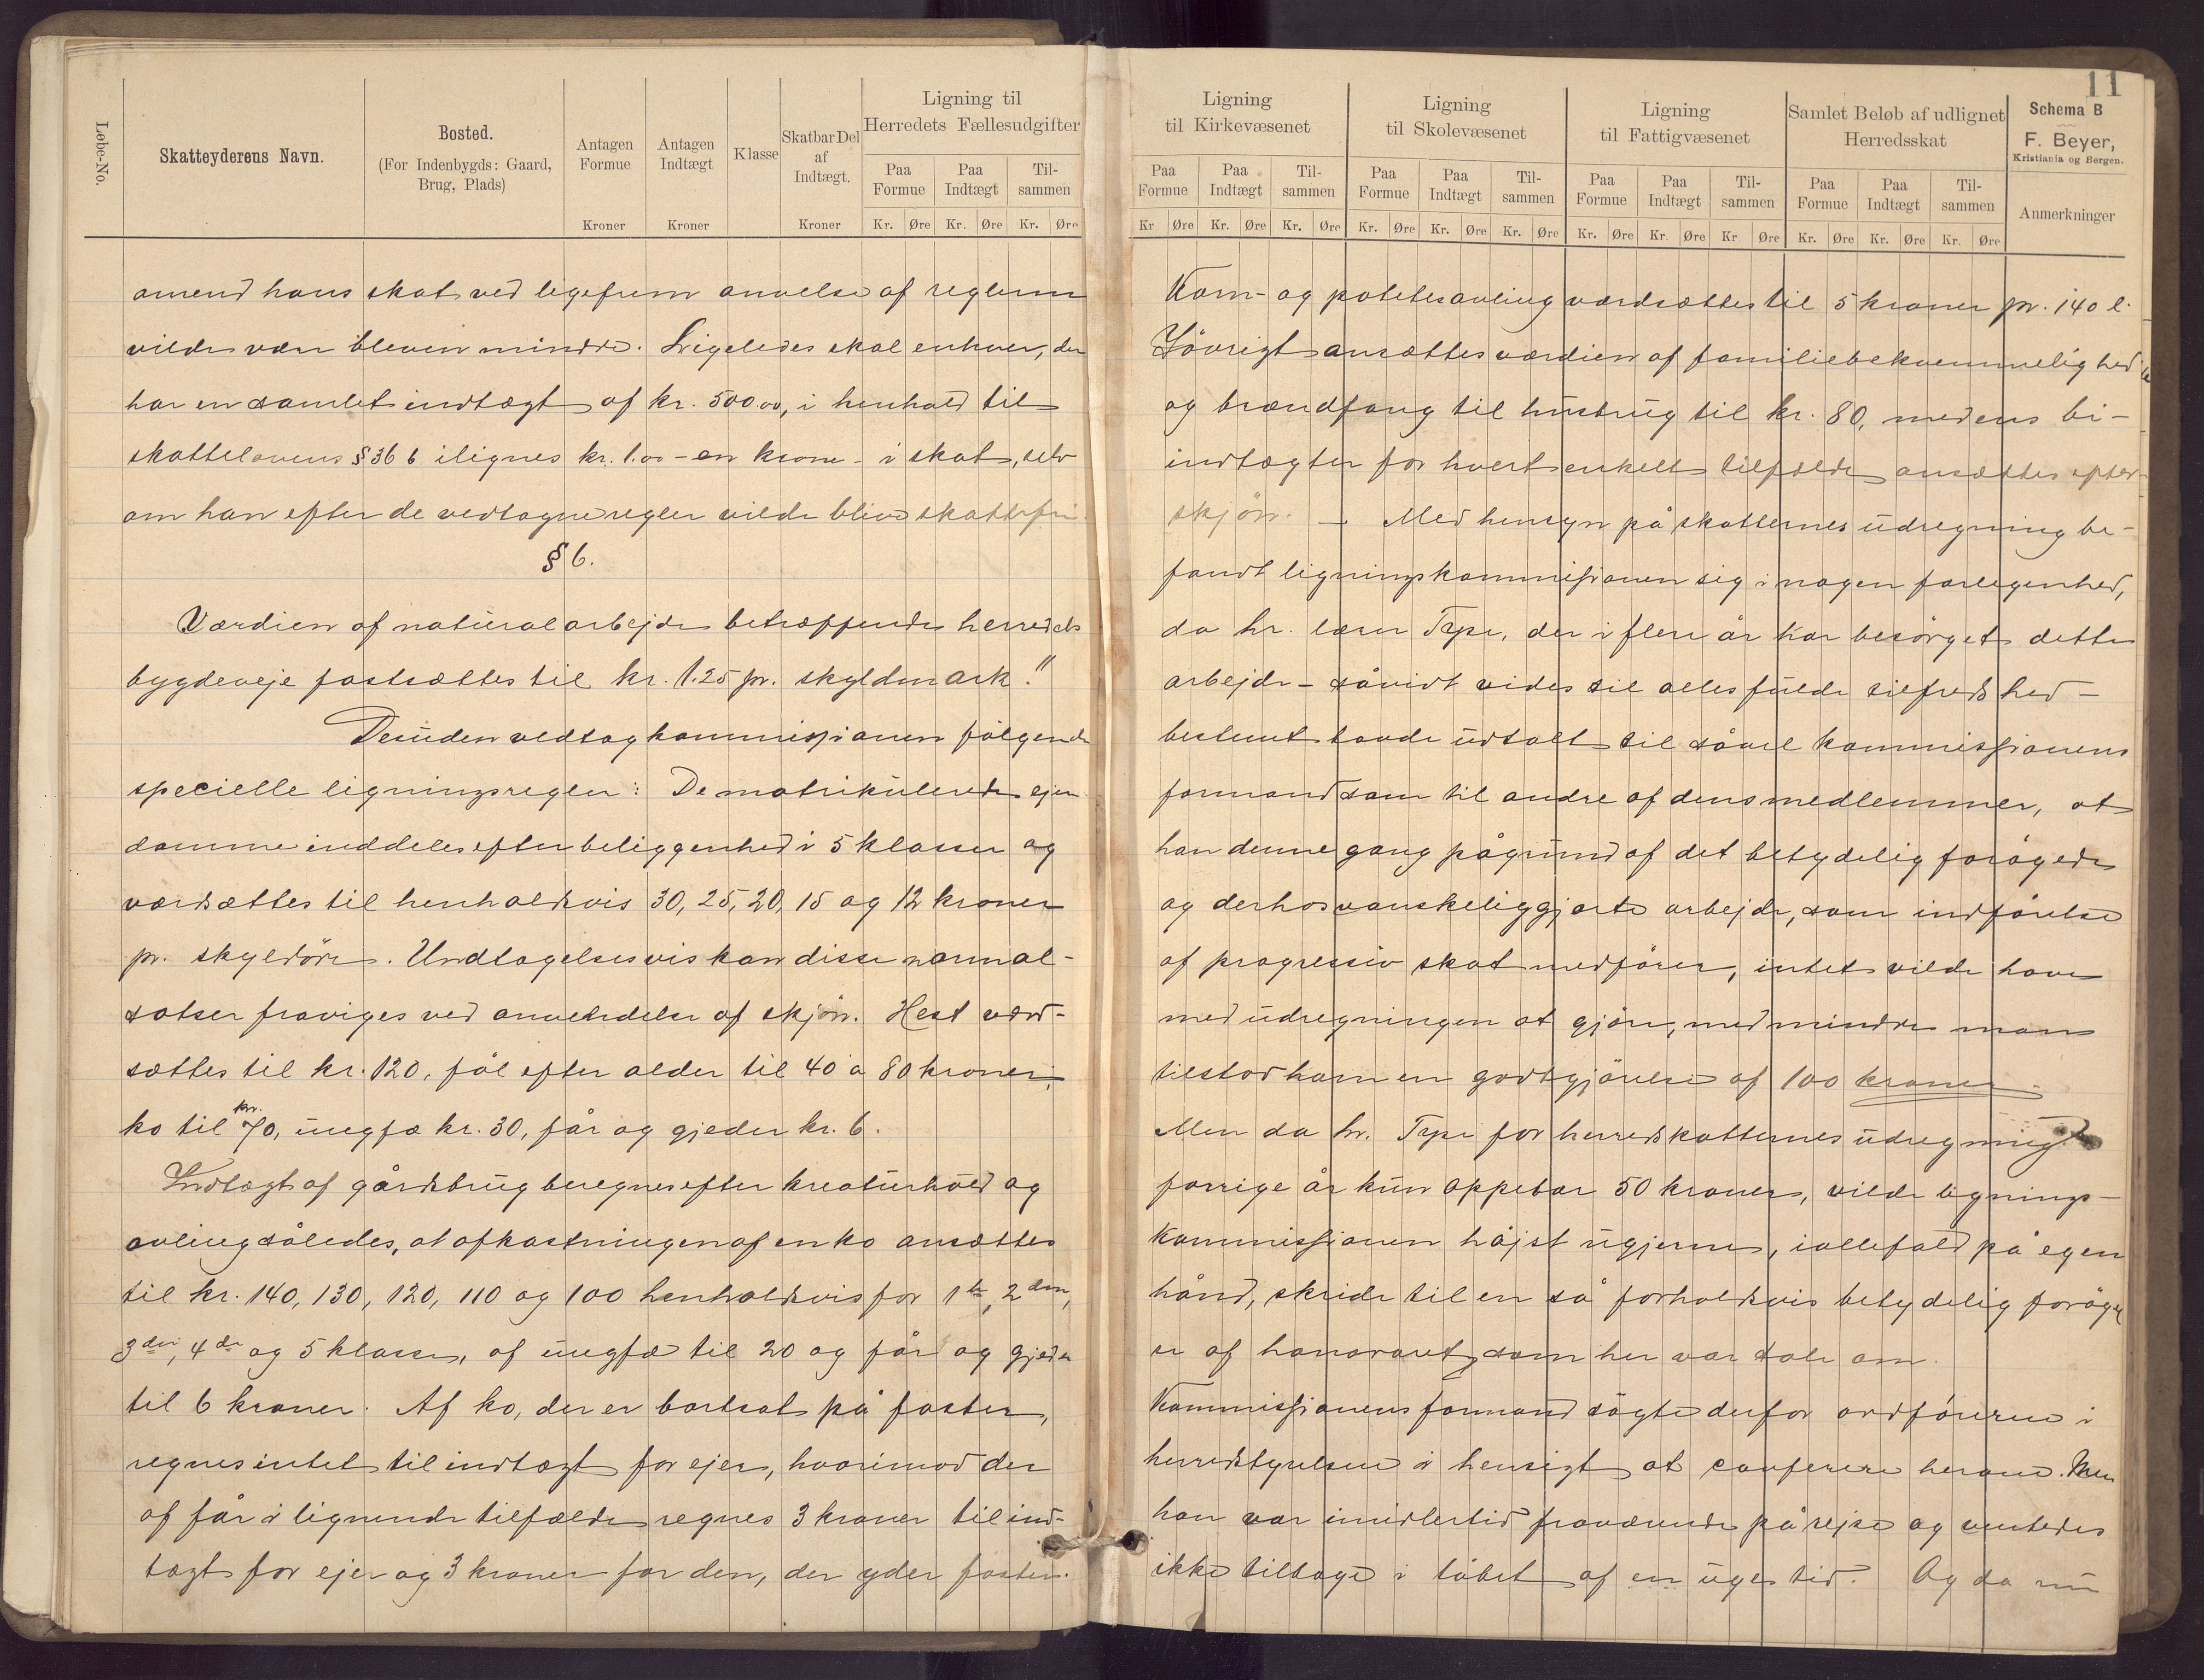 Løbe-No.
Skatteyderens Navn.
Bosted.
(For Indenbygds: Gaard,
Brug, Plads)
Antagen
Formue
Kroner
Antagen
Indtægt
Kroner
Klasse
Skatbar Del
af
Indtægt.
Kroner
Ligning til
Herredets Fællesudgifter
Paa
Formue
Paa
Indtægt
Til-
sammen
Kr. Øre Kr. Øre Kr. Øre
amend hans skat ved ligefrem anvelse af reglerne
vilde være bleven mindre. Ligeledes skal enhver, der
har en samlet indtægt af kr. 500.00, i henhold til
skattelovens § 36 b ilignes kr. 1.00 - en krone - i skat, selv
om han efter de vedtagne regler vilde blive skattefri.
§ 6.
Værdien af naturalarbejde betræffende herredets
bygdeveje fastsættes til kr. 1.25 pr. skyldmark."
Desuden vedtog kommissionen følgende
specielle ligningsregler: De matrikulerede ejen
domme inddeles efter beliggenhed i 5 klasser og
værdsættes til henholdsvis 30, 25, 20, 15 og 12 kroner
pr. skyldöre. Undtagelsesvis kan disse normal-
satser fraviges ved anvendelse af skjön. Hest værd-
sættes til kr. 120, føl efter alder til 40 a 80 kroner,
ko til kr. 70, ungfæ kr. 30, får og gjeder kr. 6.
Indtægt af gårdsbrug beregnes efter kreaturhold og
avling således, at afkastningen af en ko ansættes
til kr. 140, 130, 120, 110 og 100 henholdsvis for 1ste, 2den,
3die, 4de og 5 klasse, af ungfæ til 20 og får og gjeder
til 6 kroner. Af ko, der er bortsat på foster,
regnes intet til indtægt for ejer, hvorimod der
af får i lignende tilfælde regnes 3 kroner til ind-
tægt for ejer og 3 kroner for den, der yder foster.
11
Ligning
til Kirkevæsenet
Paa
Formue
Paa
Indtægt
Til-
sammen
Kr Øre Kr. Øre Kr. Øre
Ligning
til Skolevæsenet
Paa
Formue
Paa
Indtægt
Til-
sammen
Kr. Øre Kr. Øre Kr. Øre
Ligning
til Fattigvæsenet
Paa
Formue
Paa
Indtægt
Til-
sammen
Kr. Øre Kr. Øre Kr Øre
Samlet Beløb af udlignet
Herredsskat
Paa
Formue
Paa
Indtægt
Til-
sammen
Kr. Øre Kr. Øre Kr. Øre
Schema B
F. Beyer,
Kristiania og Bergen.
Anmerkninger
Korn- og potetesavling værdsættes til 5 kroner pr. 140 l.
Iövrigt ansættes værdien af familiebekvemmelighed
og brændfang til husbrug til kr. 80, medens bi-
indtægter for hvert enkelt tilfælde ansættes efter
skjön. - Med hensyn på skatternes udregning be-
fandt ligningskommissionen sig i nogen forlegenhed,
da hr. lærer Type, der i flere år har besörget dette
arbejde - såvidt vides til alles fulde tilfredshed -
bestemt havde udtalt til såvel kommissionens
formand som til andre af dens medlemmer, at
han denne gang pågrund af det betydelig forögede
og derhos vanskeliggjorte arbejde, som indförelse
af progressiv skat medförer, intet vilde have
med udregningen at gjöre, medmindre man
tilstod ham en godtgjörelse af 100 kroner.
Men da hr. Type for herredskatternes udregning
forrige år kun oppebar 50 kroner, vilde lignings-
kommissionen höjst ugjerne, iallefald på egen
hånd, skride til en så forholdsvis betydelig forögel
se af honoraret, som her var tale om.
Kommissionens formand sögte derfor ordföreren i
herredstyrelsen i hensigt at conferere herom. Men
han var imidlertid fraværende på rejse og ventedes
ikke tilbage i löbet af en uges tid. Og da nu